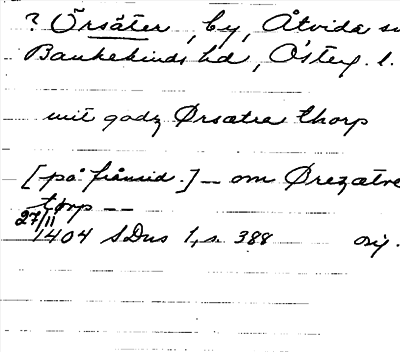 ? Örsäter, by, Åtvids sn
Bankekinds hd, Österg. l.
mit godz Ørsætra thorp
[på frånsid.] -- om Ørezætre
torp --
27/11
1404 SDns 1, s. 388 orig.